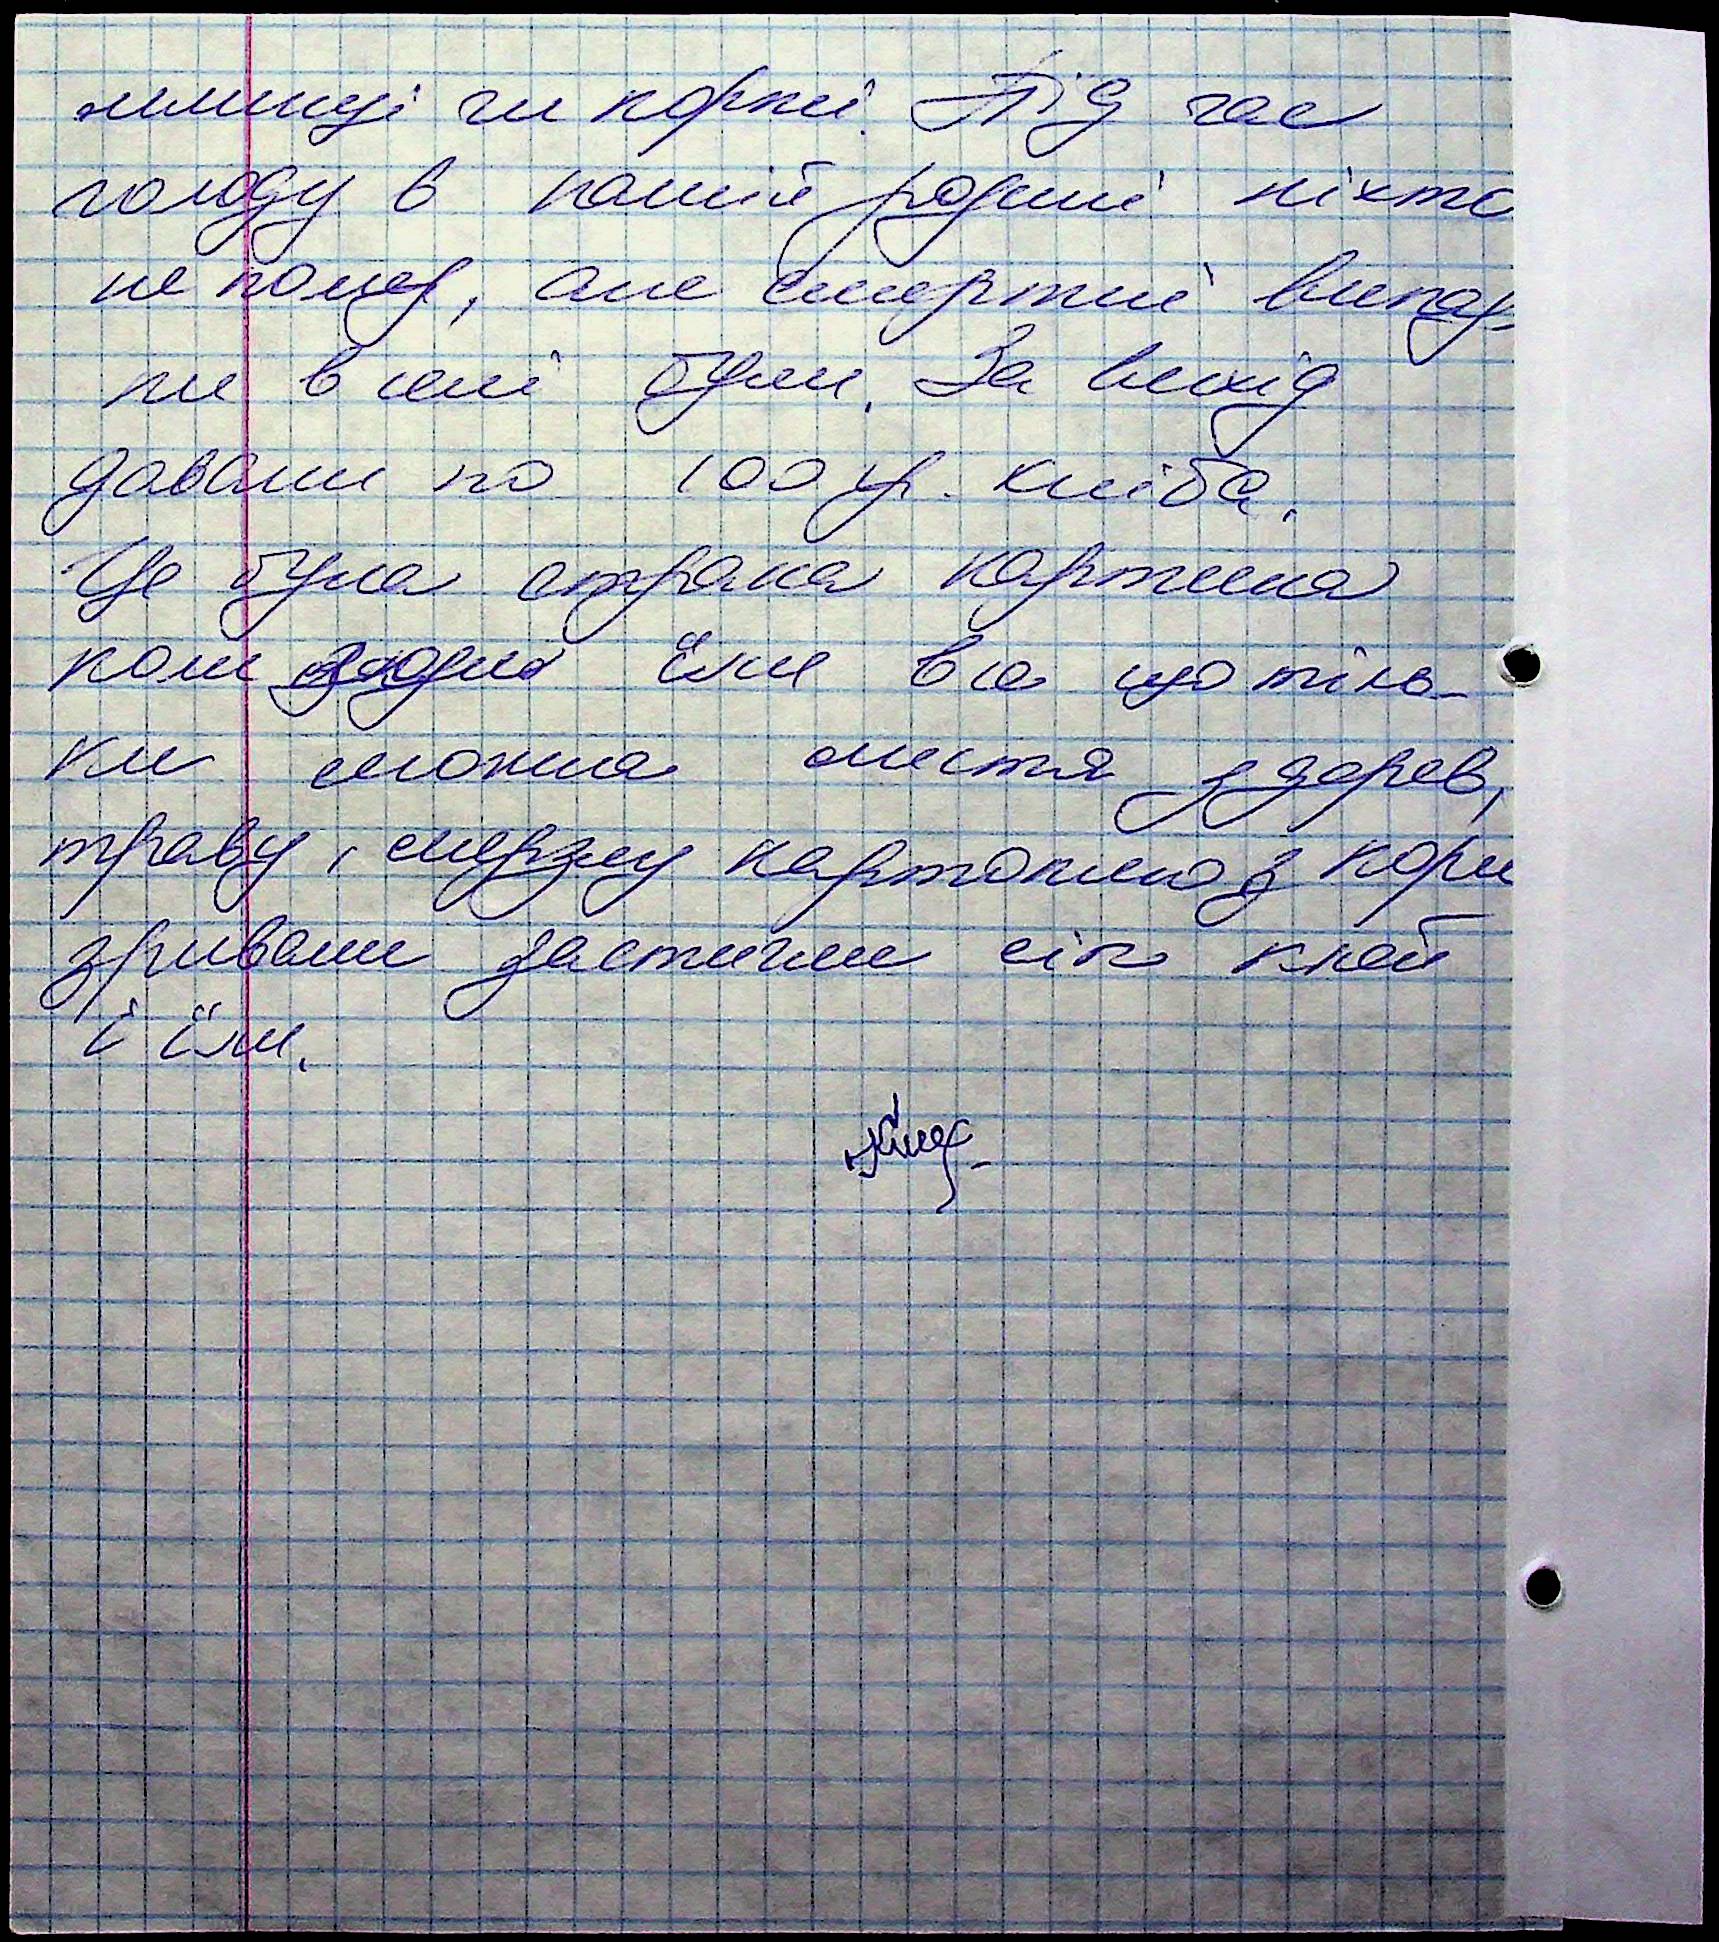 млинці чи коржі. Під час
голоду в нашій родині ніхто
не помер, але смертні випад
ки в селі були. За вихід
давали по 100 гр. хліба.
Це була страшна картина
коли люди їли все що тіль-
ки можна листя з дерев,
траву, мерзлу картоплю з кори
зривали застигли сік клей
і їли.